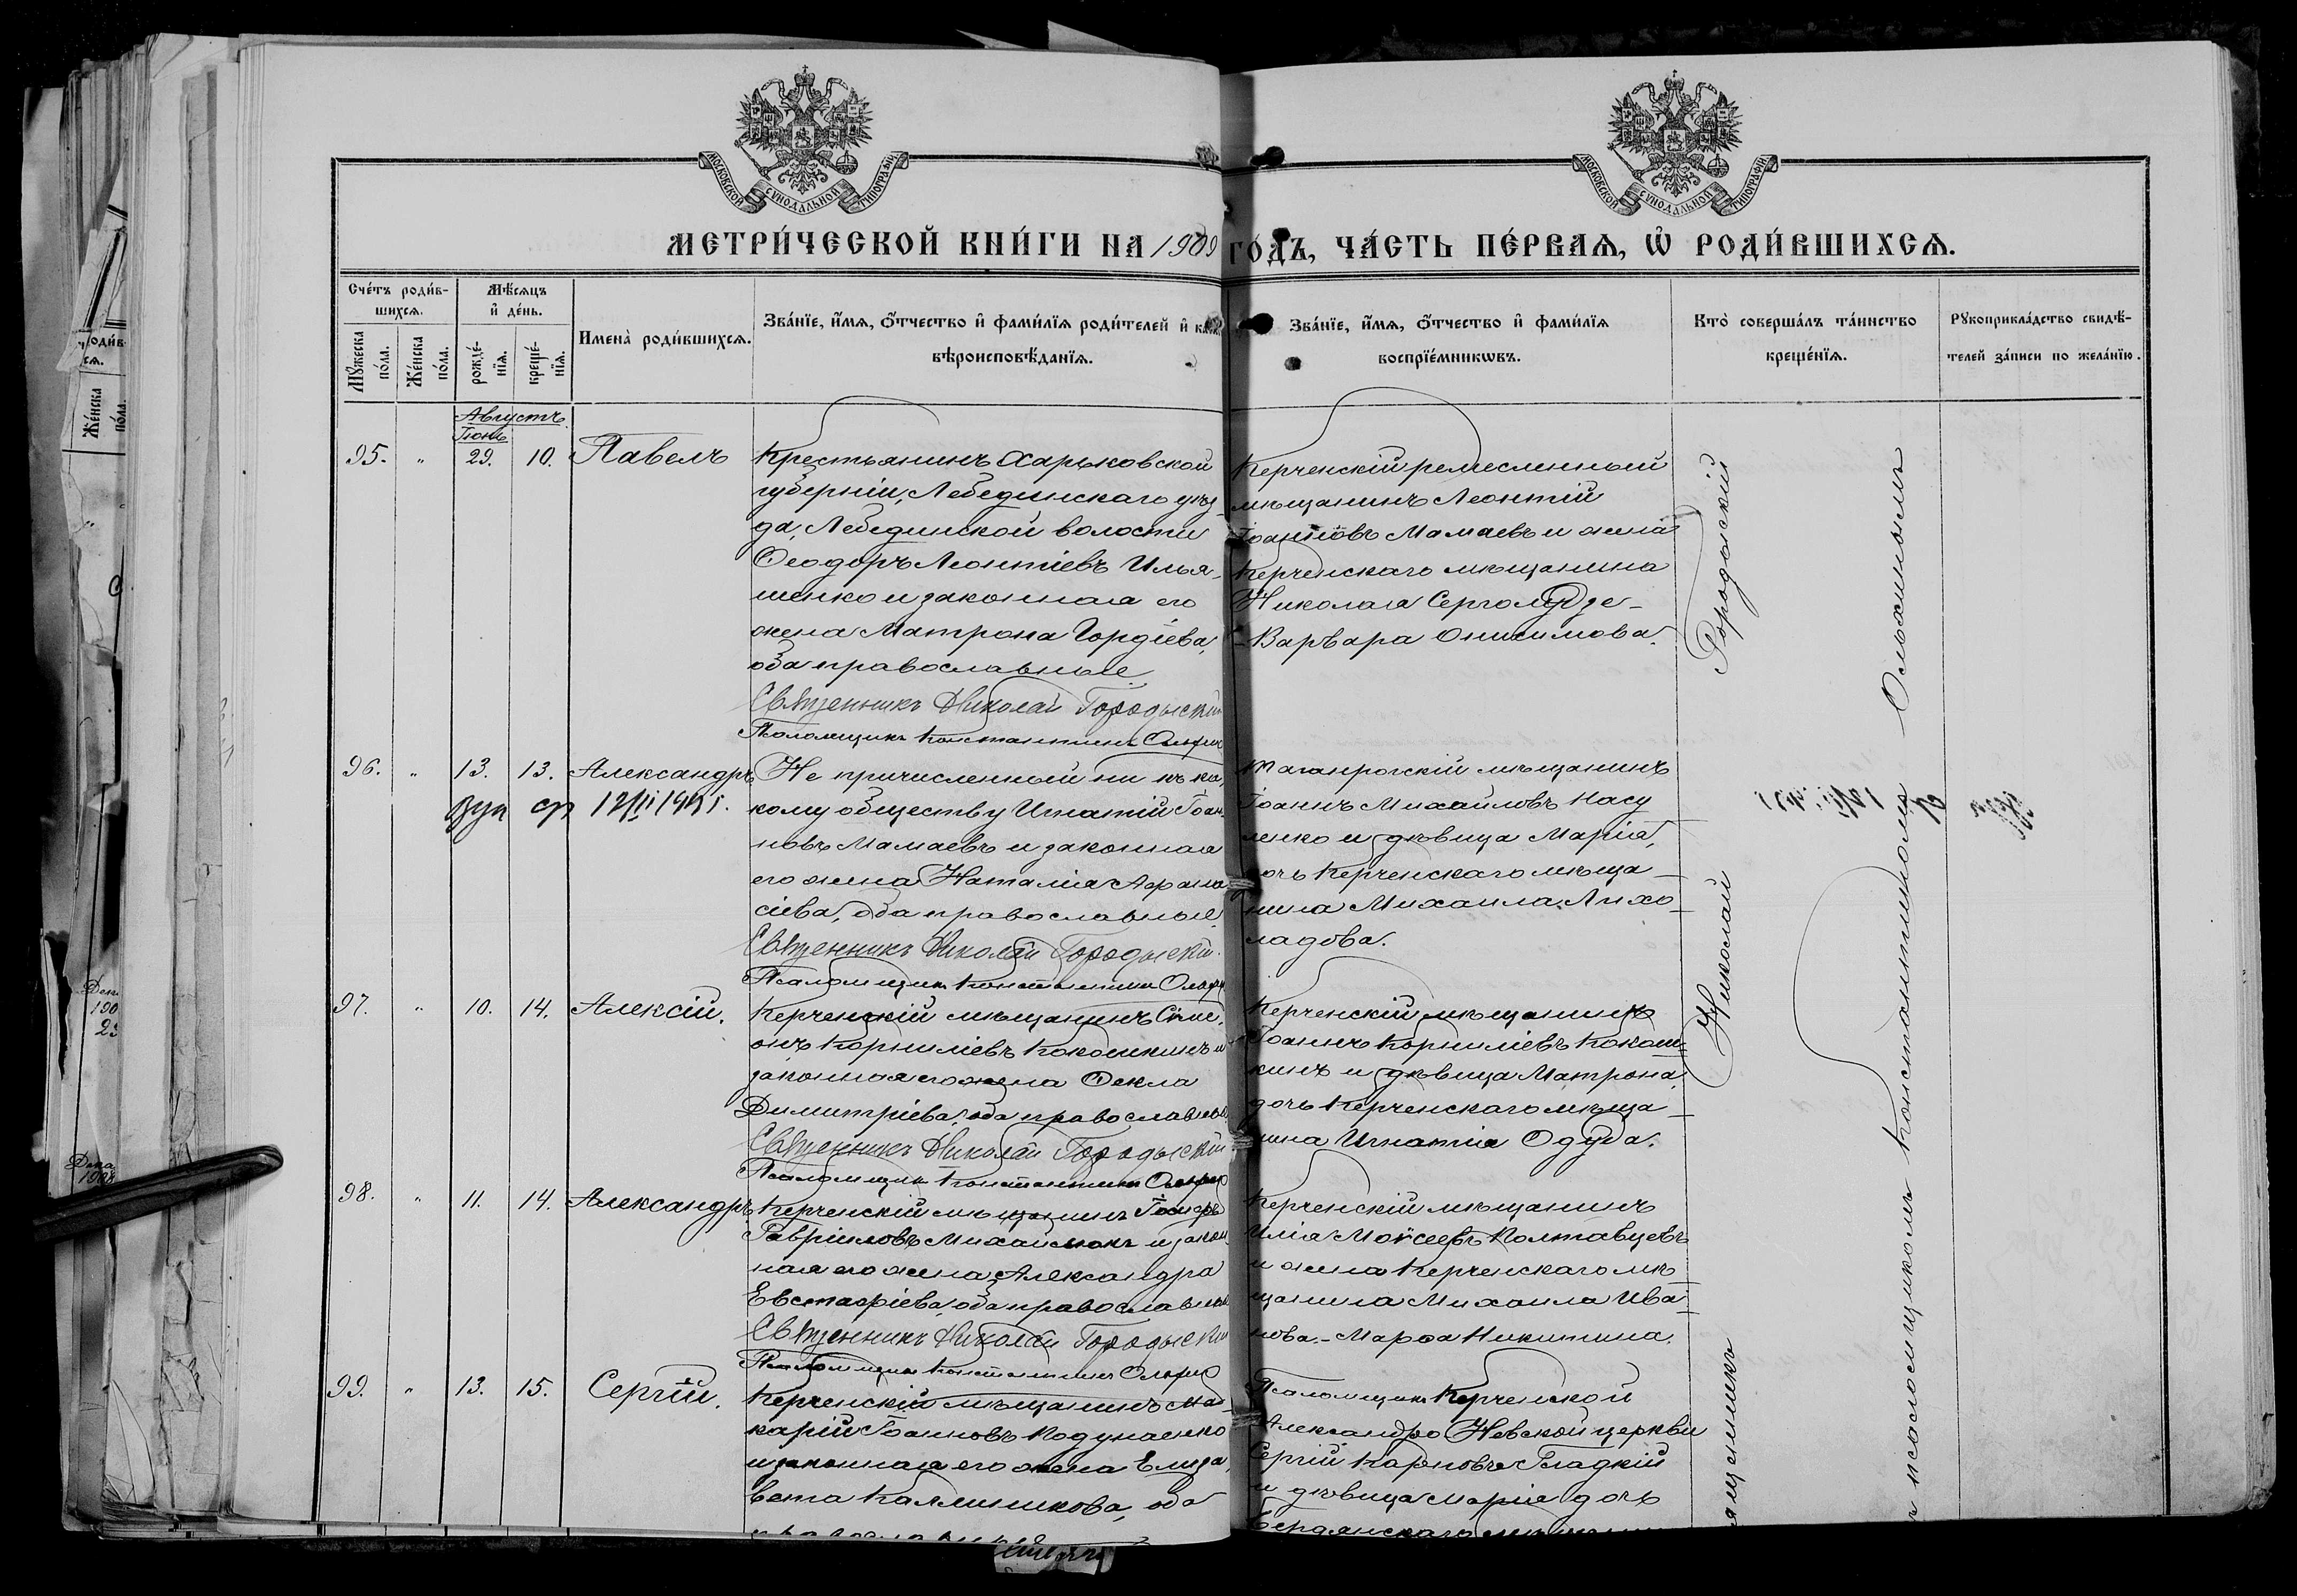 МОСКОВСКОЙ СѴНОДАЛЬНОЙ ТИПОГРАФІИ
МОСКОВСКОЙ СѴНОДАЛЬНОЙ ТИПОГРАФІИ
МЕТРИ́ЧЕСКОЙ КНИ́ГИ НА 1909 ГО́ДЪ, ЧА́СТЬ ПЕ́РВАѦ, Ѽ РОДИ́ВШИХСѦ.
Сче́тъ роди́в-
шихсѧ.
Мꙋ́жеска по́ла.
Же́нска по́ла.
Мѣ́сѧцъ
и҆ де́нь.
рожде́-нїѧ.
креще́-нїѧ.
Имена̀ роди́вшихсѧ.
Зва́нїе, и҆́мѧ, ѻ҆́тчество и҆ фами́лїѧ роди́телей и҆
вѣроисповѣ́данїѧ.
Зва́нїе, и҆́мѧ, ѻ҆́тчество и҆ фами́лїѧ
воспрїе́мникѡвъ.
Кто̀ соверша́лъ та́инство
креще́нїѧ.
Рꙋкоприкла́дство свидѣ́-
телей за́писи по жела́нїю.
Августъ
Іюнь
95. " 29. 10. Павелъ
Крестьянинъ Харьковской
губерніи, Лебединскаго уѣз-
да, Лебединской волости
Ѳеодоръ Леонтіевъ Илья-
шенко и законная его
жена Матрона Гордіева,
оба православные
Священникъ Николай Городыскій
Псаломщикъ Константинъ
Керченскій ремесленный
мѣщанинъ Леонтій
Іоанновъ Мамаевъ и жена
Керченскаго мѣщанина
Николая
Варвара Онисимова.
96. " 13. 13. Александръ
Не причисленный ни къ ка-
кому обществу Игнатій Іоан-
новъ Мамаевъ и законная
его жена Наталія Афана-
сіева, оба православные
Священникъ Николай Городыскій.
Псаломщикъ Константинъ
Таганрогскій мѣщанинъ
Іоаннъ Михайловъ Насу
ленко и дѣвица Марія,
дочь Керченскаго мѣща-
нина Михаила Лихо-
ладова.
97. " 10. 14. Алексій.
Керченскій мѣщанинъ Симе-
онъ Корниліевъ Кокошкинъ и
законная его жена Ѳекла
Димитріева, оба православные
Священникъ Николай Городыскій
Псаломщикъ Константинъ
Керченскій мѣщанинъ
Іоаннъ Корниліевъ Кокош-
кинъ и дѣвица Матрона,
дочь Керченскаго мѣща-
нина Игнатія Одуда.
98. " 11. 14. Александръ
Керченскій мѣщанинъ
Гавріиловъ Михайлюкъ и закон-
ная его жена Александра
Евстафіева, оба православные
Священникъ Николай Городыскій
Псаломщикъ Константинъ
Керченскій мѣщанинъ
Илія Моѵсеевъ Полтавцевъ
и жена Керченскаго мѣ-
щанина Михаила Ива-
нова - Марѳа Никитина.
99. " 13. 15. Сергій.
Керченскій мѣщанинъ Ма-
карій Іоанновъ Кодунаенко
и законная его жена Елиза-
вета Каллиникова, оба
православные
Псаломщикъ Керченской
Александро-Невской церкви
Сергій Карповъ Гладкій
и дѣвица Марія дочь
Бердянскаго
Николай Городыскій
псаломщикомъ Константиномъ